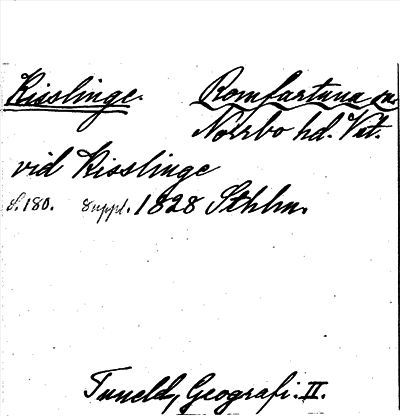 Kisslinge. Romfartuna sn.
Norrbo hd. Vstm.
vid Kisslinge
S. 180. Suppl. 1828 Sthlm.
Tuneld, Geografi. II.